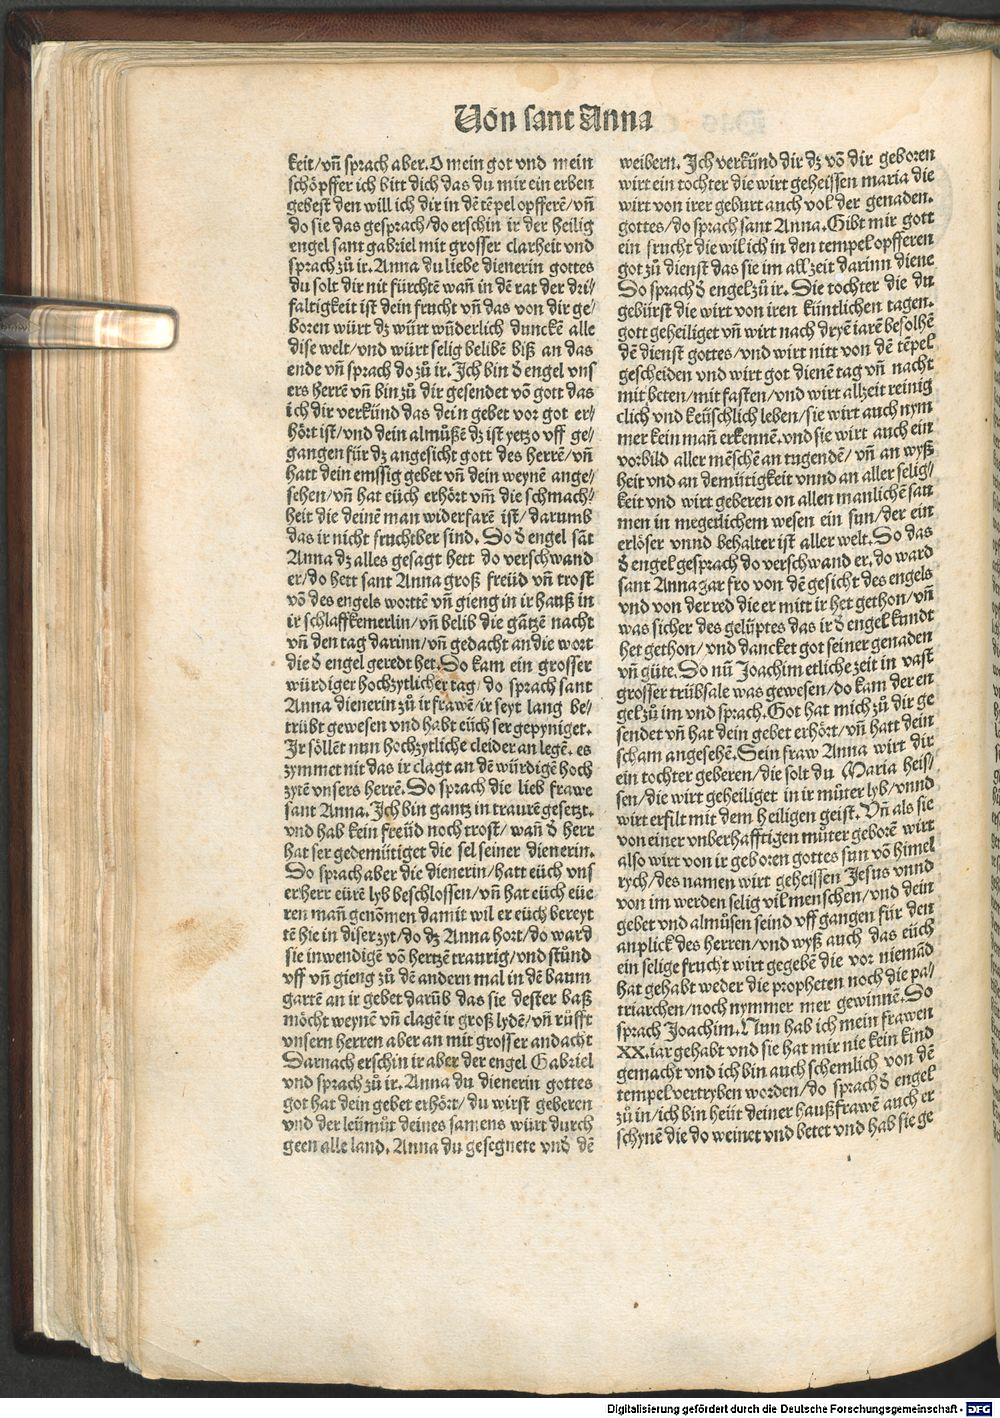 Von sant Anna
keit/vn̄ sprach aber. O mein got vnd mein
schöpffer ich bitt dich das du mir ein erben
gebest den will ich dir in dē tēpel opfferē/vn̄
do sie das gesprach/do erschin ir der heilig
engel sant gabriel mit grosser clarheit vnd
sprach zů ir. Anna du liebe dienerin gottes
du solt dir nit fürchtē wañ in dē rat der dri⸗
faltigkeit ist dein frucht vn̄ das von dir ge⸗
boren würt dz würt wūderlich dunckē alle
dise welt/vnd würt selig belibē biß an das
ende vn̄ sprach do zů ir. Ich bin d̄ engel vns
ers herrē vn̄ bin zů dir gesendet vō gott das
ich dir verkünd das dein gebet vor got er⸗
hört ist/vnd dein almůßē dz ist yetzo vff ge⸗
gangen für dz angesicht gott des herrē/vn̄
hatt dein emssig gebet vn̄ dein weynē ange⸗
sehen/vn̄ hat eüch erhört vm̄ die schmach⸗
heit die deinē man widerfarē ist/darumb
das ir nicht fruchtber sind. Do d̄ engel sāt
Anna dz alles gesagt hett do verschwand
er/do hett sant Anna groß freüd vn̄ trost
vō des engels worttē vn̄ gieng in ir hauß in
ir schlaffkemerlin/vn̄ belib die gātzē nacht
vn̄ den tag darinn/vn̄ gedacht an die wort
die d̄ engel geredt het. So kam ein grosser
würdiger hochzytlicher tag/do sprach sant
Anna dienerin zů ir frawē/ir seyt lang be⸗
trübt gewesen vnd habt eüch ser gepyniget.
Ir söllēt nun hochzytliche cleider an legē. es
zymmet nit das ir clagt an dē würdigē hoch
zytē vnsers herrē. Do sprach die lieb frawe
sant Anna. Ich bin gantz in traurē gesetzt.
vnd hab kein freüd noch trost/wañ d̄ herr
hat ser gedemütiget die sel seiner dienerin.
Do sprach aber die dienerin/hatt eüch vns
er herr eürē lyb beschlossen/vn̄ hat eüch eüe
ren mañ genōmen damit wil er eüch bereyt
tē hie in diser zyt/do dz Anna hort/do ward
sie inwendigē vō hertzē traurig/vnd stůnd
vff vn̄ gieng zů dē andern mal in dē baum
gartē an ir gebet darūb das sie dester baß
möcht weynē vn̄ clagē ir groß lydē/vn̄ rüfft
vnsern herren aber an mit grosser andacht
Darnach erschin ir aber der engel Gabriel
vnd sprach zů ir. Anna du dienerin gottes
got hat dein gebet erhört/du wirst geberen
vnd der leümůt deines samens würt durch
geen alle land. Anna du gesegnete vnd̄ dē
weibern. Ich verkünd dir dz vō dir geboren
wirt ein tochter die wirt geheissen maria die
wirt von irer geburt auch vol der genaden.
gottes/do sprach sant Anna. Gibt mir gott
ein frucht die wil ich in den tempel opfferen
got zů dienst das sie im allzeit darinn diene
Do sprach d̄ engel zů ir. Die tochter die du
gebürst die wirt von iren küntlichen tagen.
gott geheiliget vn̄ wirt nach dryē iarē befolhē
dē dienst gottes/vnd wirt nitt von dē tēpel
gescheiden vnd wirt got dienē tag vn̄ nacht
mit beten/mit fasten/vnd wirt allzeit reinig
clich vnd keüschlich leben/sie wirt auch nym
mer kein mañ erkennē. vnd sie wirt auch ein
vorbild aller mēschē an tugendē/vn̄ an wyß
heit vnd an demütigkeit vnnd an aller selig⸗
keit vnd wirt geberen on allen manlichē sam
men in megetlichem wesen ein sun/der ein
erlöser vnnd behalter ist aller welt. Do das
d̄ engel gesprach do verschwand er. do ward
sant Anna gar fro von dē gesicht des engels
vnd von der red die er mitt ir het gethon/vn̄
was sicher des gelüptes das ir d̄ engel kundt
het gethon/vnd dancket got seiner genaden
vn̄ güte. So nū Joachim etliche zeit in vast
grosser trübsale was gewesen/do kam der en
gel zů im vnd sprach. Got hat mich zů dir ge
sendet vn̄ hat dein gebet erhört/vn̄ hatt dein
scham angesehē. Dein fraw Anna wirt dir
ein tochter geberen/die solt du Maria heis⸗
sen/die wirt geheiliget in ir můter lyb/vnnd
wirt erfilt mit dem heiligen geist. Vn̄ als sie
von einer vnberhafftigen můter geborē wirt
also wirt von ir geboren gottes sun vō himel
rych/des namen wirt geheissen Jesus vnnd
von im werden selig vil menschen/vnd dein
gebet vnd almůsen seind vff gangen für den
anplick des herren/vnd wyß auch das eüch
ein selige frucht wirt gegebē die vor niemād
hat gehabt weder die propheten noch die pa⸗
triarchen/noch nymmer mer gewinnē. Do
sprach Joachim. Nun hab ich mein frawen
XX. iar gehabt vnd sie hat mir nie kein kind
gemacht vnd ich bin auch schemlich von dē
tempel vertryben worden/do sprach d̄ engel
zů in/ich bin heüt deiner haußfrawē auch er
schynē die do weinet vnd betet vnd hab sie ge
Digitalisierung gefördert durch die Deutsche Forschungsgemeinschaft - DFG